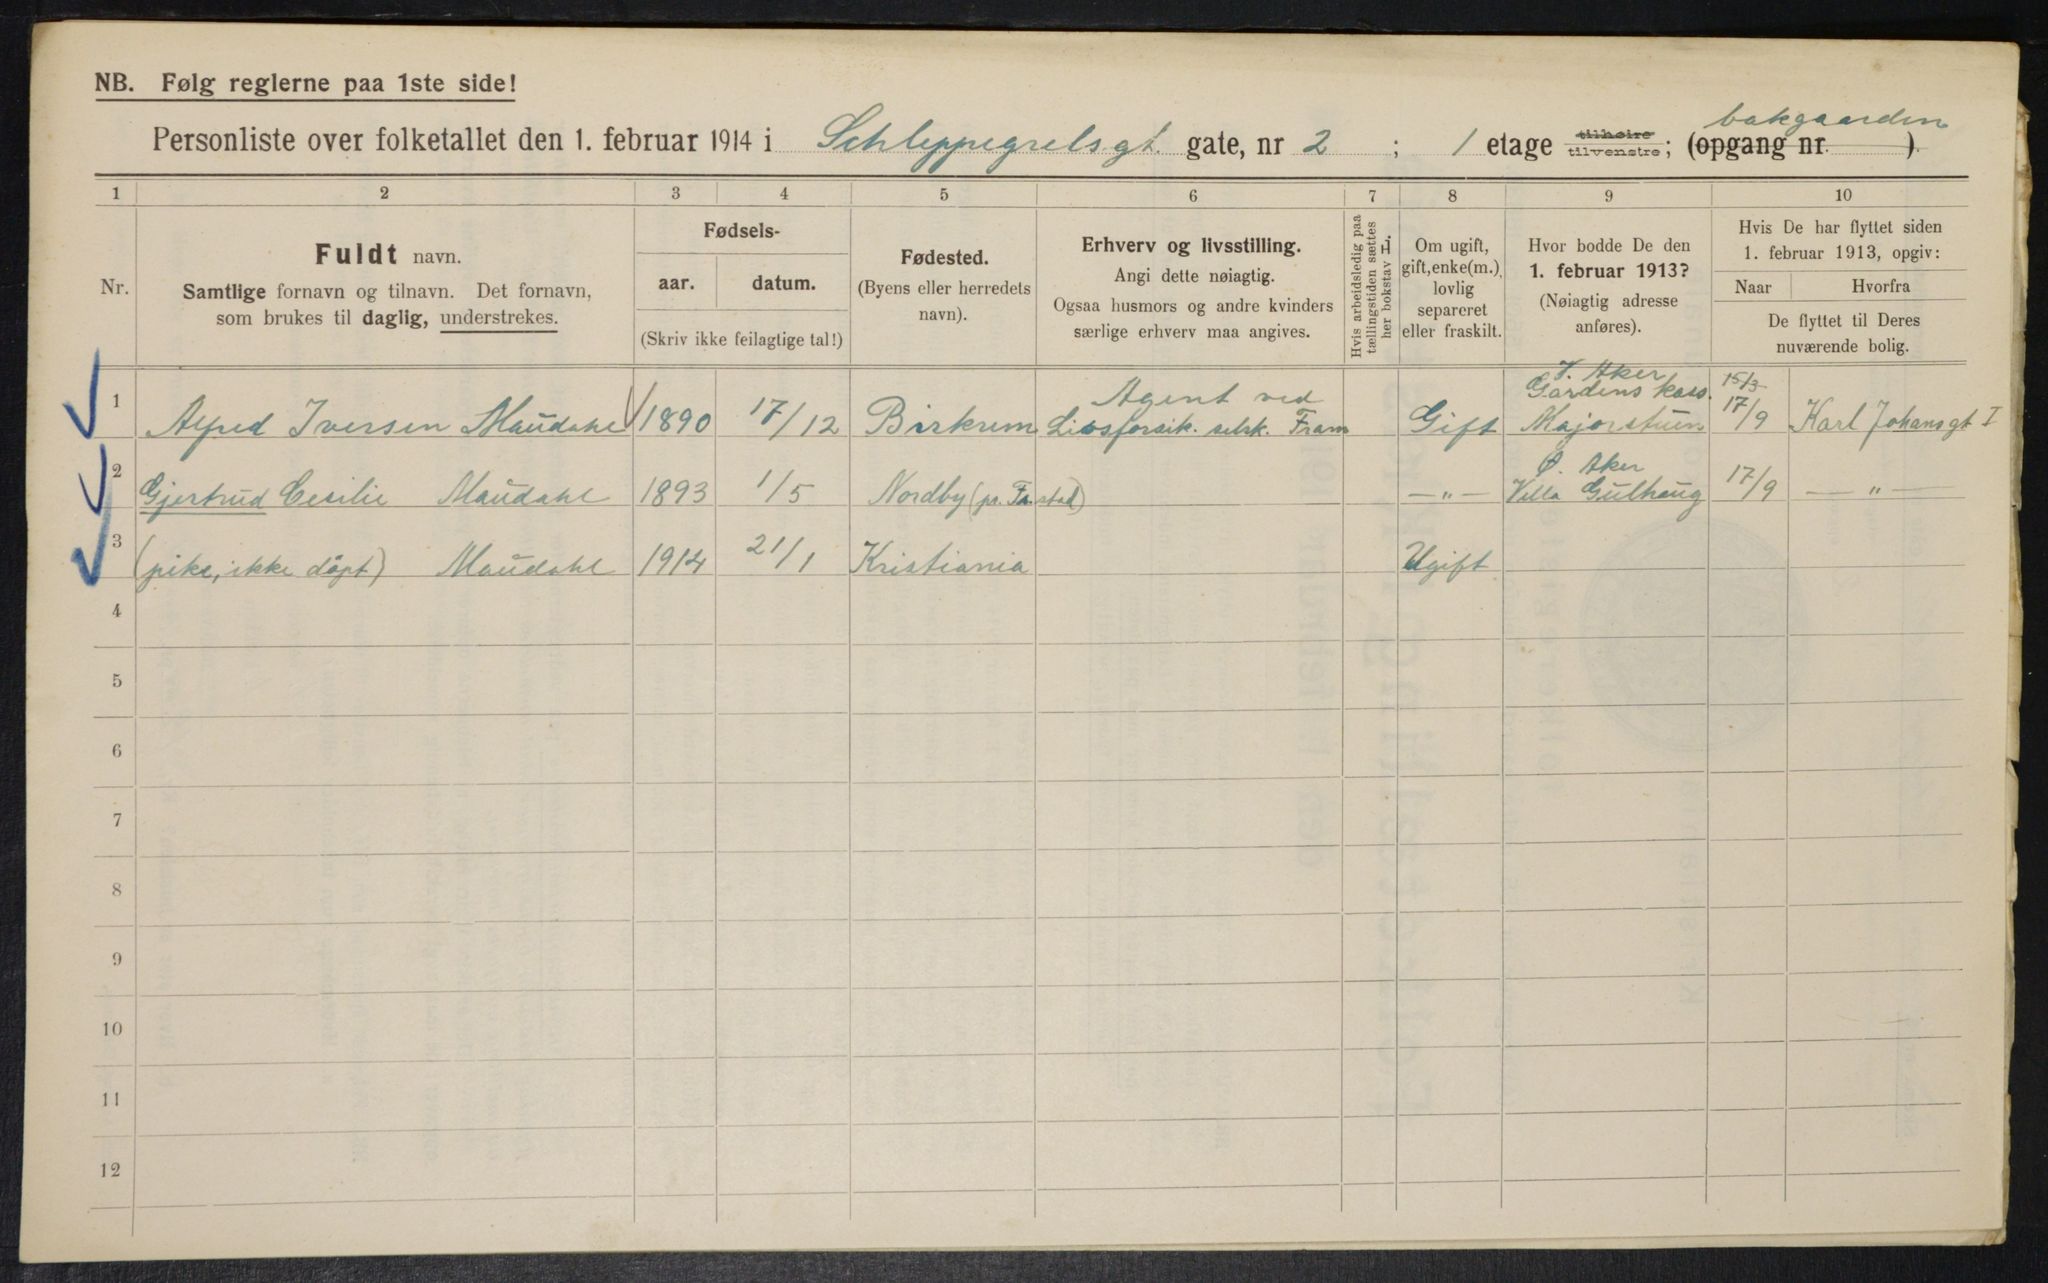 NB. Følg reglerne paa 1ste side!
Personliste over folketallet den 1. februar 1914 i Schleppegrelsgt. gate, nr 2 ; 1 etage tilhøire tilvenstre; (opgang nr. ). bakgaarden
1 2 3 4 5 6 7 8 9 10
Nr.
Fuldt navn.
Samtlige fornavn og tilnavn. Det fornavn,
som brukes til daglig, understrekes.
Fødsels-
aar. datum.
(Skriv ikke feilagtige tal!)
Fødested.
(Byens eller herredets
navn).
Erhverv og livsstilling.
Angi dette nøiagtig.
Ogsaa husmors og andre kvinders
særlige erhverv maa angives.
Hvis arbeidsledig paa
tællingstiden sættes
her bokstav L.
Om ugift,
gift, enke(m.),
lovlig
separeret
eller fraskilt.
Hvor bodde De den
1. februar 1913?
(Nøiagtig adresse
anføres).
Hvis De har flyttet siden
1. februar 1913, opgiv:
Naar Hvorfra
De flyttet til Deres
nuværende bolig.
1 Alfred Iversen Maudahl 1890 17/12 Birkrem Agent ved Livsforsik. selsk. Fram Gift V. Aker Gardens kas. Majorstuen 15/3 17/9 Karl Johansgt I
2 Gjertrud Cesilie Maudahl 1893 1/5 Nordby (pr. Fr.stad) —"— Ø. Aker Villa Gulhaug 17/9 —"—
3 (pike, ikke døpt) Maudahl 1914 21/1 Kristiania Ugift
4
5
6
7
8
9
10
11
12